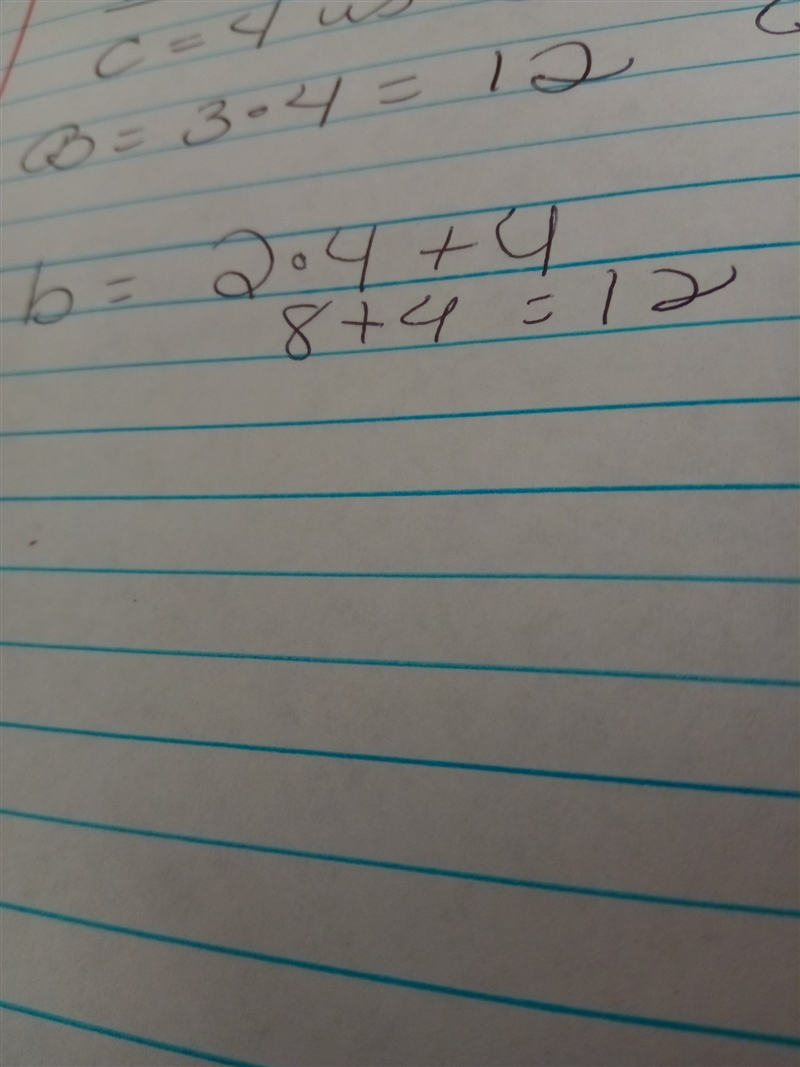 c = 4
B = 3·4 = 12
b = 2·4 + 4
8+4 = 12